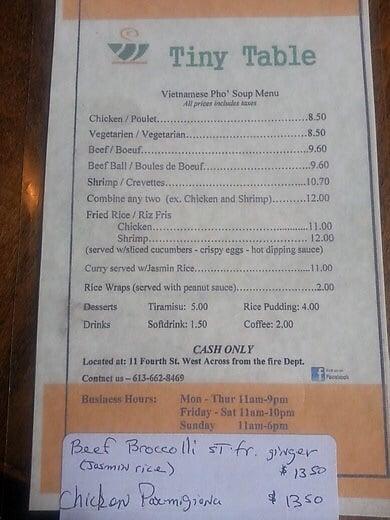 Tiny Table
Vietnamese Pho' Soup Menu
All prices includes taxes
Chicken / Poulet..........8.50
Vegetarien / Vegetarian..........8.50
Beef / Boeuf..........9.60
Beef Ball / Boules de Boeuf..........9.60
Shrimp / Crevettes..........10.70
Combine any two (ex. Chicken and Shrimp)..........12.00
Fried Rice / Riz Fris
Chicken..........11.00
Shrimp..........12.00
(served w/sliced cucumbers - crispy eggs - hot dipping sauce)
Curry served w/Jasmin Rice..........11.00
Rice Wraps (served with peanut sauce)..........2.00
Desserts Tiramisu: 5.00 Rice Pudding: 4.00
Drinks Softdrink: 1.50 Coffee: 2.00
CASH ONLY
Located at: 11 Fourth St. West Across from the fire Dept.
Contact us – 613-662-8469
Find us on
Facebook
Business Hours: Mon - Thur 11am-9pm
Friday - Sat 11am-10pm
Sunday 11am-6pm
Beef Broccolli st. fr. ginger
(Jasmin rice) $ 13 50
Chicken Parmigiana $ 13 50